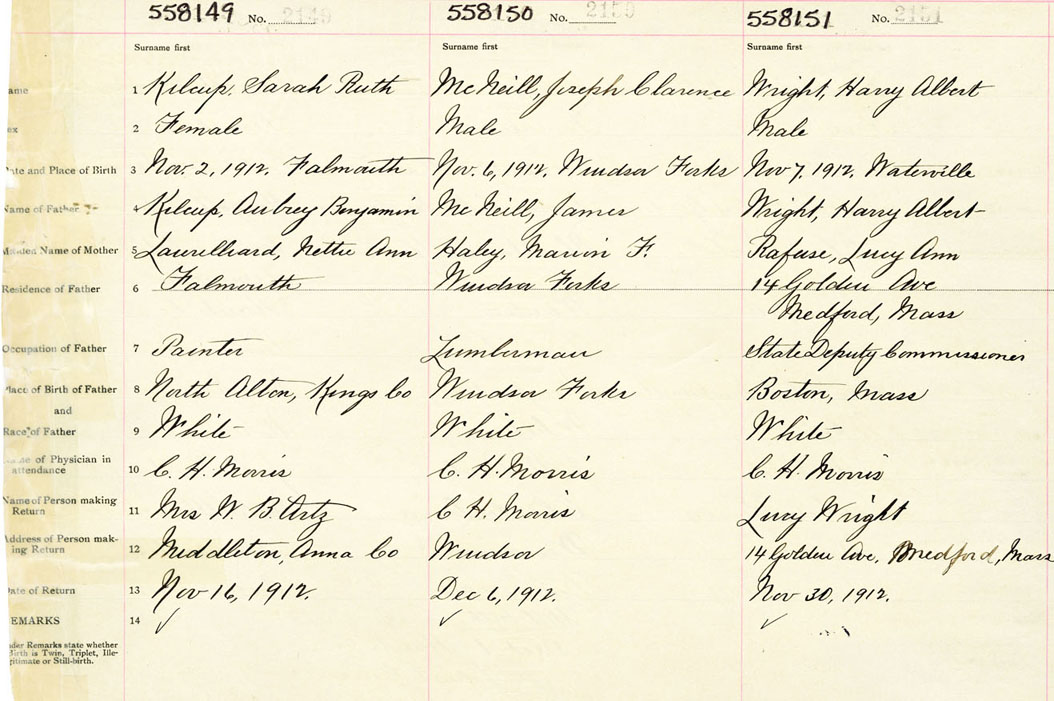 558149 No. 2149 558150 No. 2150 558151 No. 2151
Surname first Surname first Surname first
ame 1 Kilcup, Sarah Ruth McNeill, Joseph Clarence Wright, Harry Albert
ex 2 Female Male Male
ate and Place of Birth 3 Nov. 2, 1912. Falmouth Nov. 6, 1912. Windsor Forks Nov 7, 1912. Waterville
Name of Father 4 Kilcup, Aubrey Benjamin McNeill, James Wright, Harry Albert
Maiden Name of Mother 5 Laurelliard, Nettie Ann Haley, Marion F. Rafuse, Lucy Ann
Residence of Father 6 Falmouth Windsor Forks 14 Golden Ave
Medford, Mass
Occupation of Father 7 Painter Lumberman State Deputy Commissioner
Place of Birth of Father 8 North Alton, Kings Co Windsor Forks Boston, Mass
and
Race of Father 9 White White White
Name of Physician in
attendance 10 C. H. Morris C. H. Morris C. H. Morris
Name of Person making
Return 11 Mrs W. B. Artz C H. Morris Lucy Wright
Address of Person mak-
ing Return 12 Middleton, Anna Co Windsor 14 Golden Ave, Medford, Mass
Date of Return 13 Nov 16, 1912. Dec 6, 1912. Nov 30, 1912.
EMARKS 14
der Remarks state whether
Birth is Twin, Triplet, Ille-
gitimate or Still-birth.